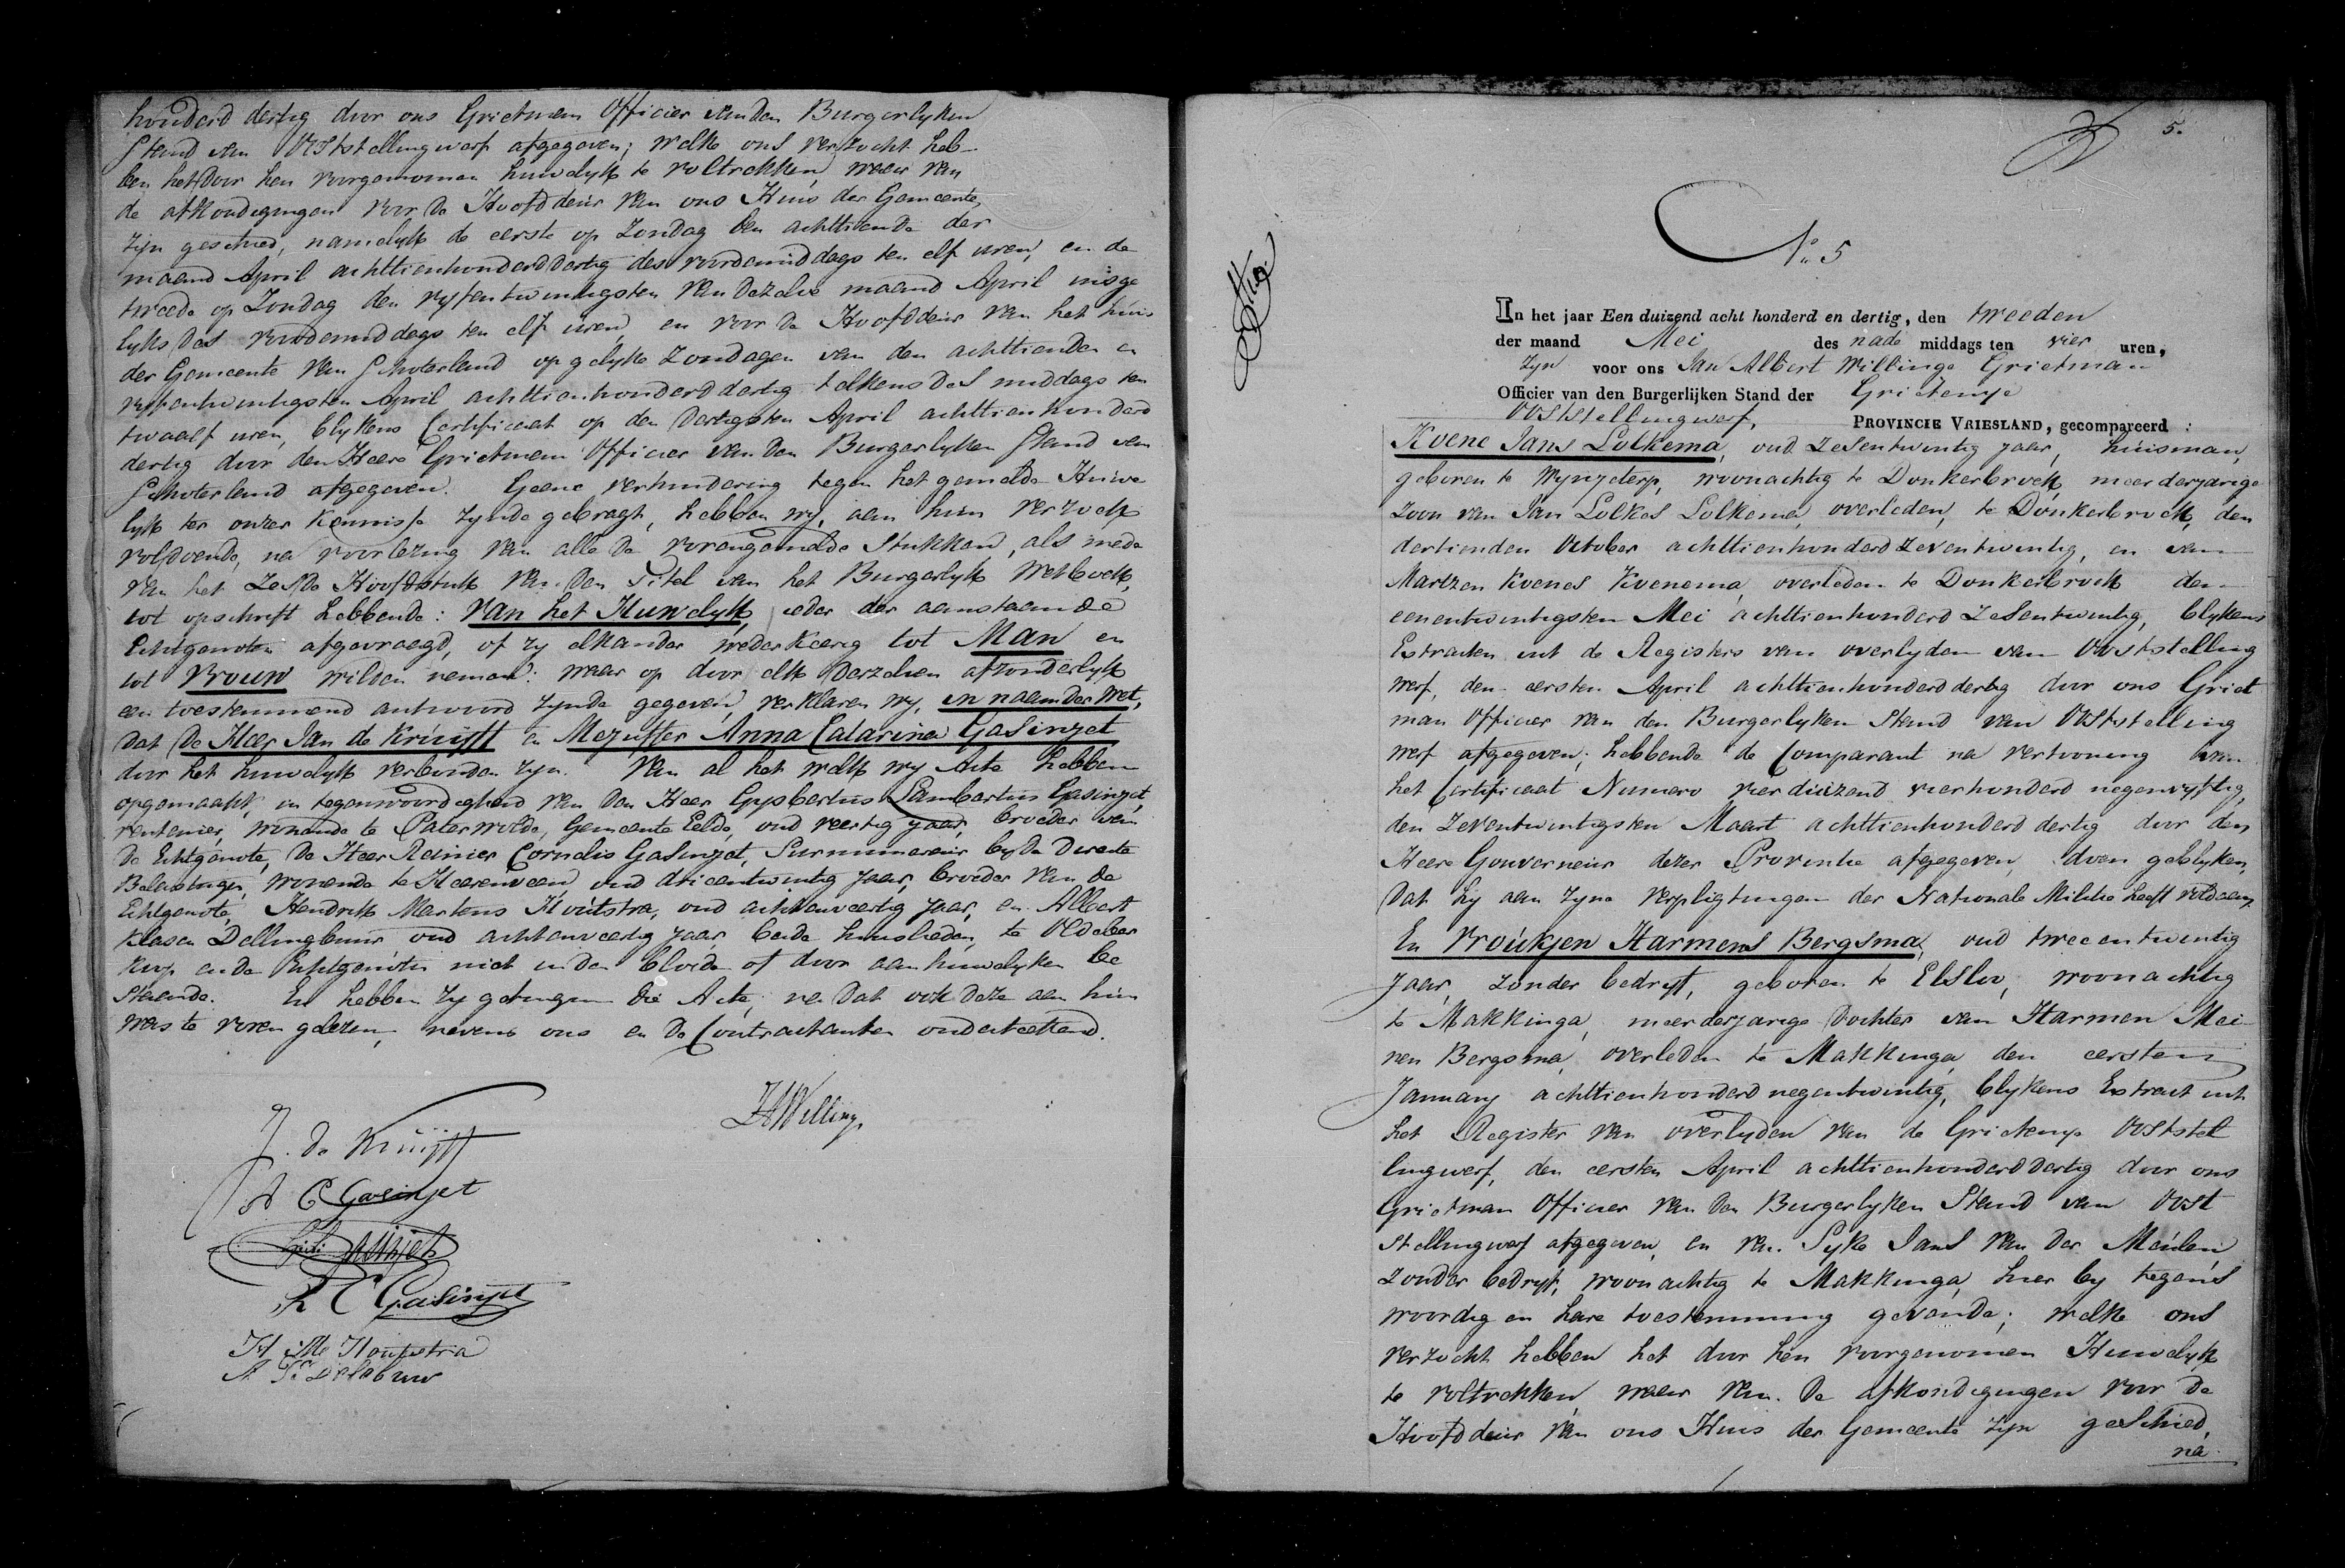 honderd dertig door ons Grietman Officier van den Burgerlyken
Stand van Oststellingwerf afgegeven; welke ons verzocht heb-
ben het door hen voorgenomen huwelyk te voltrekken, waar van
de afkondigingen voor de Hoofddeur van ons Huis der Gemeente,
zyn geschied, namelyk de eerste op Zondag den achttiende der
maand April achttienhonderd dertig des voordemiddags ten elf uren, en de
tweede op Zondag den vyfentwintigsten van dezelve maand April insge
lyks des voordemiddags ten elf uren, en voor de Hoofddeur van het huis
der Gemeente van Schoterland op gelyke Zondagen van den achttienden en
vyfentwintigsten April achttienhonderd dertig telkens des middags ten
twaalf uren, blykens Certificaat op den dertigsten April achttienhonderd
dertig door den Heere Grietman Officier van den Burgerlyken Stand van
Schoterland afgegeven. Geene verhindering tegen het gemelde Huwe
lyk ter onzer Kennisse zynde gebragt, hebben wy, aan hun verzoek
voldoende, na voorlezing van alle de vorengemelde Stukken, als mede
van het Zesde Hoofdstuk van den Titel van het Burgerlyk Wetboek,
tot opschrift hebbende: van het Huwelyk, ieder der aanstaande
Echtgenoten afgevraagd, of zy elkander wederkeerig tot Man en
tot Vrouw wilden nemen: waar op door elk derzelven afzonderlyk
een toestemmend antwoord zynde gegeven, verklaren wy, in naam der Wet,
dat de Heer Jan de Kruijff en Mejuffer Anna Catarina Gasinjet
door het huwelyk verbonden zyn. Van al het welk wy Acte hebben
opgemaakt, in tegenwoordigheid van den Heer Gysbertus Lambertus Gasinjet,
rentenier, wonende te Paterwolde, Gemeente Eelde, oud veertig jaar, broeder van
de Echtgenote, De Heer Reinier Cornelis Gasinjet, Surnumerair by de Directe
Belastingen, wonende te Heerenveen, oud drieentwintig Jaar, broeder van de
Echtgenote, Hendrik Martens Houtstra, oud achtenveertig Jaar, en Albert
Klasen Dellingbuur oud achtenveertig Jaar, beide huislieden, te Oldeber
koop en de Echtgenoten niet in den bloede of door aanhuwelyken be
staande. En hebben zy getuigen die Acte, na dat ook deze aan hun
was te voren gelezen, nevens ons en de Contractanten onderteekend.
JAWillinge
J. de Kruijff
A C Gasinjet
Gasinjet
R C Gasinjet
H M Houtstra
5.
No. 5
In het jaar Een duizend acht honderd en dertig, den tweeden
der maand Mei des nade middags ten vier uren,
zyn voor ons Jan Albert Willinge Grietman
Officier van den Burgerlijken Stand der Grietenye
Oststellingwerf, PROVINCIE VRIESLAND, gecompareerd:
Koene Jans Lolkema, oud Zesentwintig jaar, huisman,
geboren te Wynjeterp, woonachtig te Donkerbroek, meerderjarige
zoon van Jan Lolkes Lolkema, overleden, te Donkerbroek, den
dertienden October achttienhonderd zeventwintig, en van
Martzen Koenes Koenema, overleden te Donkerbroek den
eenentwintigsten Mei achttienhonderd Zesentwintig, blykens
Extracten uit de Registers van overlyden van Oststelling
werf, den eersten April achttienhonderd dertig door ons Griet
man Officier van den Burgerlyken Stand van Oststelling
werf afgegeven; hebbende de Comparant na vertooning van
het Certificaat Numero vierduizend vierhonderd negenvyftig,
den zeventwintigsten Maart achttienhonderd dertig door den
Heere Gouverneur dezer Provintie afgegeven, doen geblyken,
dat hy aan zyne verpligtingen der Nationale Militie heeft voldaan,
En Vroukjen Harmens Bergsma, oud tweeentwintig
Jaar, zonder bedryf, geboren te Elsloo, woonachtig
te Makkinga, meerderjarige dochter van Harmen Mei
nen Bergsma, overleden te Makkinga den eersten
January achttienhonderd negentwintig, blykens Extract uit
het Register van overlyden van de Grietenye Oststel
lingwerf, den eersten April achttienhonderd dertig door ons
Grietman Officier van den Burgerlyken Stand van Oost
stellingwerf afgegeven, en van Syke Jans van der Meulen,
zonder bedryf, woonachtig te Makkinga, hier by tegens
woordig en hare toestemming gevende; welke ons
verzocht hebben het door hen voorgenomen Huwelyk
te voltrekken, waar van de afkondigingen voor de
Hoofddeur van ons Huis der Gemeente zyn geschied,
na